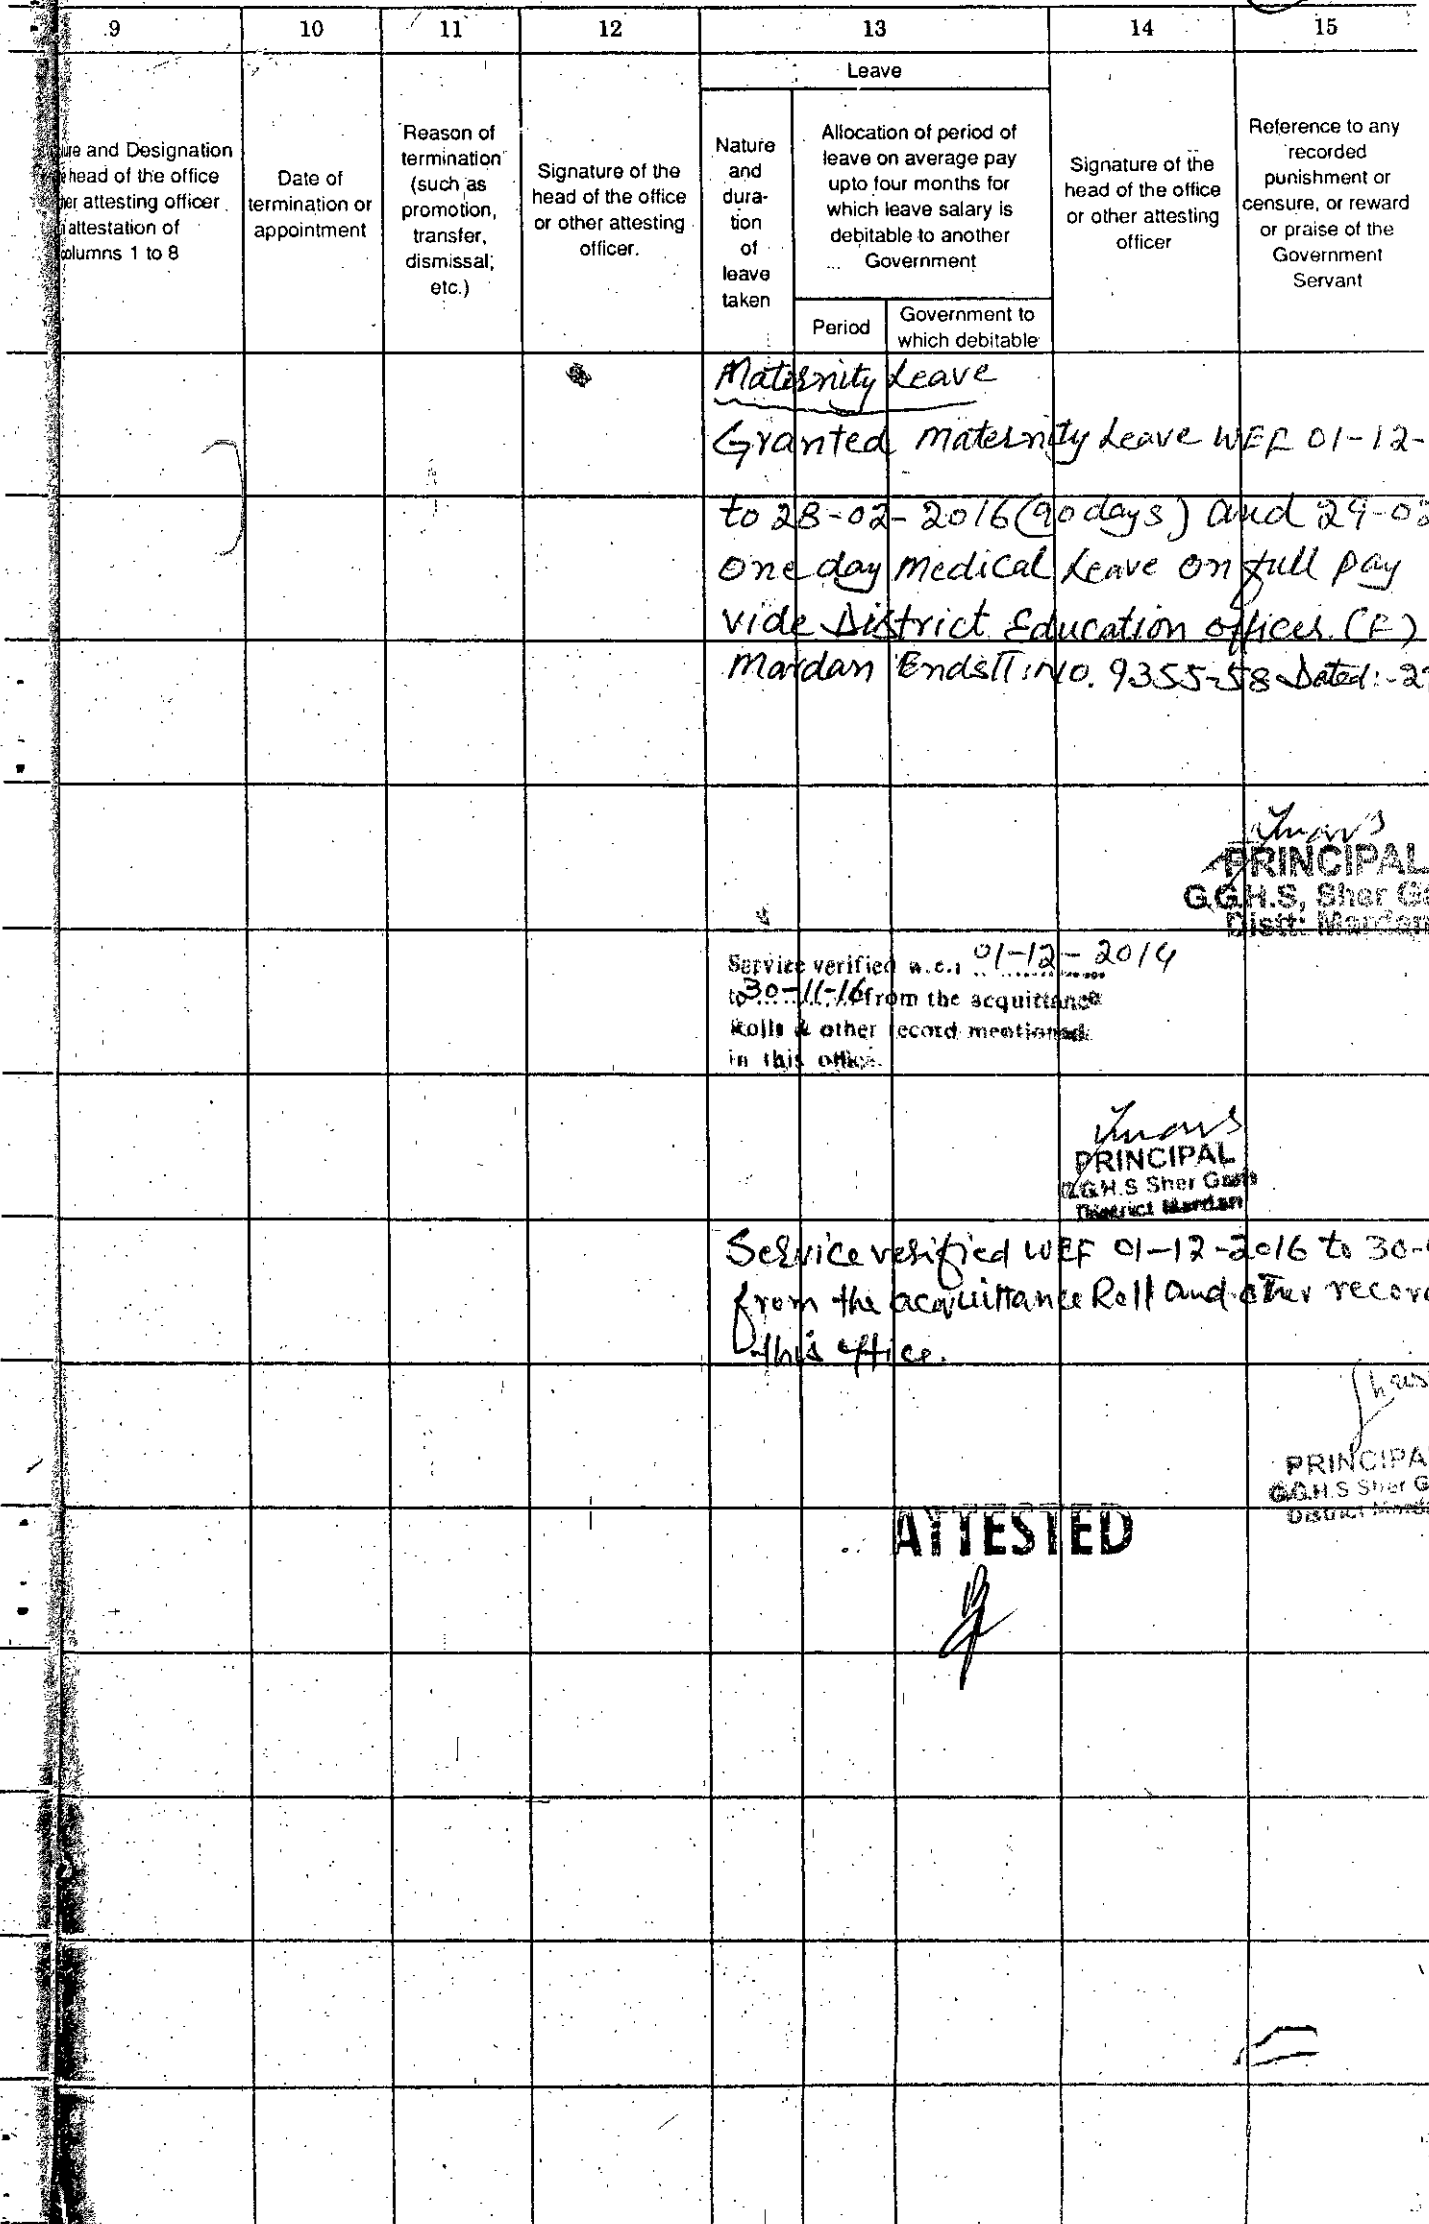 9 10 11 12 13 14 15
Leave
and Designation
head of the office
attesting officer
attestation of
columns 1 to 8
Date of
termination or
appointment
Reason of
termination
(such as
promotion,
transfer,
dismissal,
etc.)
Signature of the
head of the office
or other attesting
officer.
Nature
and
dura-
tion
of
leave
taken
Allocation of period of
leave on average pay
upto four months for
which leave salary is
debitable to another
Government
Period
Government to
which debitable
Signature of the
head of the office
or other attesting
officer
Reference to any
recorded
punishment or
censure, or reward
or praise of the
Government
Servant
Maternity Leave
Granted Maternity Leave WEF 01-12-
to 28-02-2016 (90 days) and 29-02
one day Medical Leave on full pay
vide District Education officer (F)
Mardan Endstt: No. 9355-58 Dated:-2
PRINCIPAL
G.G.H.S, Sher
Distt: Mardan
Service verified w.e.f 01-12-2014
to 30-11-16 from the acquittance
Rolls & other record mentioned
in this office.
PRINCIPAL
G.G.H.S Sher Garh
District Mardan
Service verified WEF 01-12-2016 to 30-
from the acquittance Roll and other record
this office.
PRINCIPA
G.G.H.S Sher G
District Marda
ATTESTED